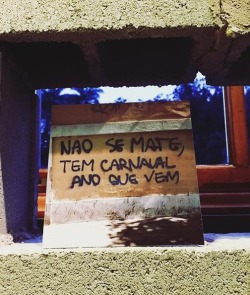 NÃO SE MATE,
TEM CARNAVAL
ANO QUE VEM